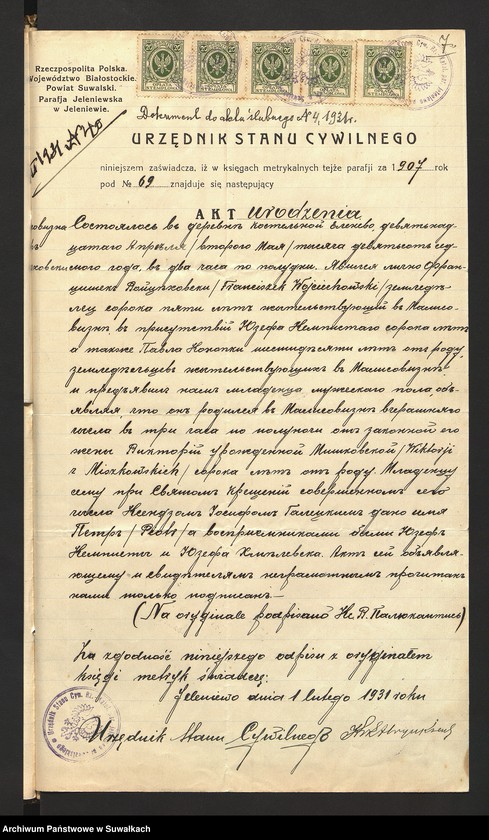 7
Rzeczpospolita Polska.
Województwo Białostockie.
Powiat Suwalski.
Parafja Jeleniewska
w Jeleniewie.
Dokument do aktu ślubnego N 4, 1931 r.
URZĘDNIK STANU CYWILNEGO
niniejszem zaświadcza, iż w księgach metrykalnych tejże parafji za 1907 rok
pod № 69 znajduje się następujący
AKT urodzenia
Состоялось въ деревнѣ костельной Еленево, девятнад-
цатаго Апрѣля /второго Мая/ тысяча девятьсотъ сед-
мого года, въ два часа по полудни. Явился лично Фран-
цишекъ Войцѣховски /Franciszek Wojciechowski/ земледѣ-
лец сорока пяти лѣтъ жительствующій въ
въ присутствіи Юзефа сорока лѣтъ
а также Павла шестидесяти лѣтъ отъ роду,
земледѣльцевъ жительствующихъ въ
и предъявилъ намъ младенца мужескаго пола, объ-
являя, что онъ родился въ вчерашняго
числа въ три часа по полуночи отъ законной его
жены Викторіи урожденной Мишковской /Wiktorji
z Miszkowskich/ сорока лѣтъ отъ роду. Младенцу
сему при Святомъ Крещеніи совершенномъ сего
числа Ксендзомъ Іосифомъ Галецкимъ дано имя
Петръ /Piotr/ а воспріемниками были Юзефъ
и Юзефа Актъ сей объявля-
ющему и свидѣтелямъ неграмотнымъ прочитанъ
нами только подписанъ.—
(Na oryginale podpisano Кс. В. )
Za zgodność niniejszego odpisu z oryginałem
księgi metryk świadczę:
Jeleniewo dnia 1 lutego 1931 roku
Urzędnik Stanu Cywilnego
Archiwum Państwowe w Suwałkach